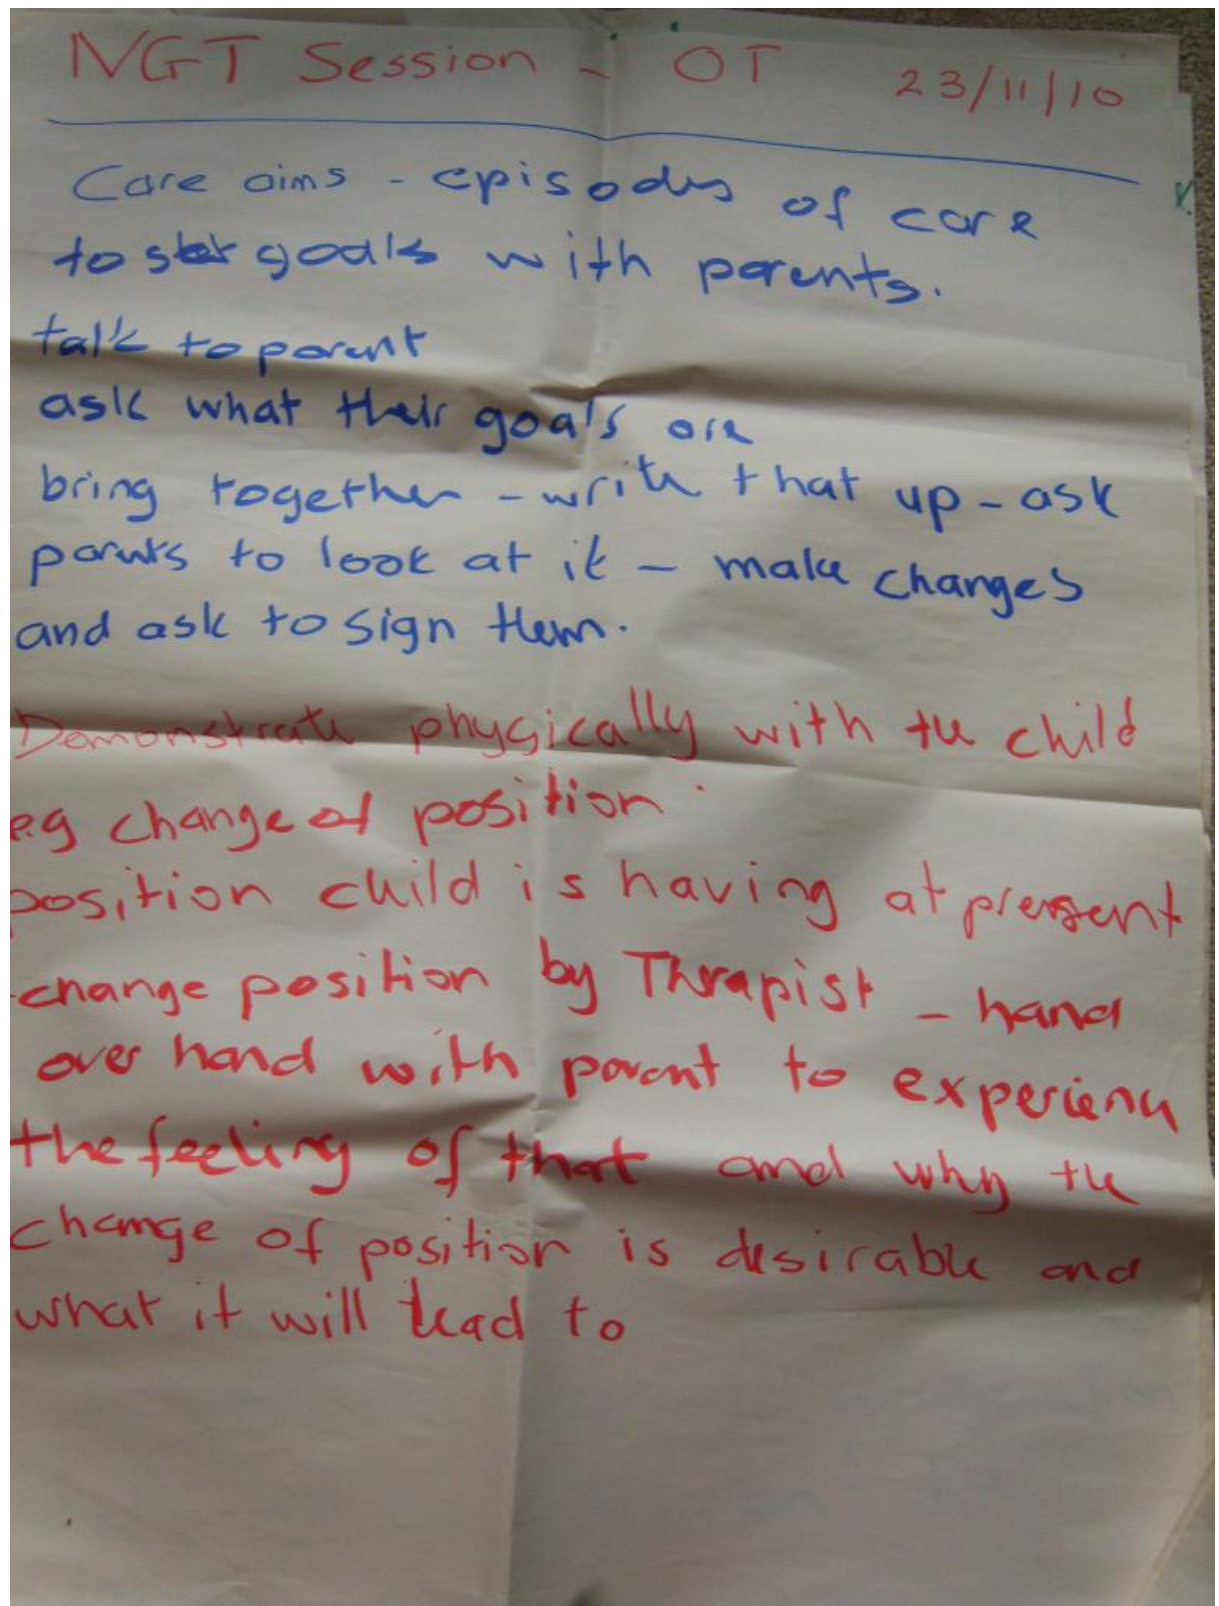 NGT Session - OT 23/11/10
Care aims - episodes of care
to set goals with parents.
talk to parent
ask what their goals are
bring together - write that up - ask
parents to look at it - make changes
and ask to sign them.
Demonstrate physically with the child
e.g change of position.
position child is having at present
change position by Therapist - hand
over hand with parent to experience
the feeling of that and why the
change of position is desirable and
what it will lead to